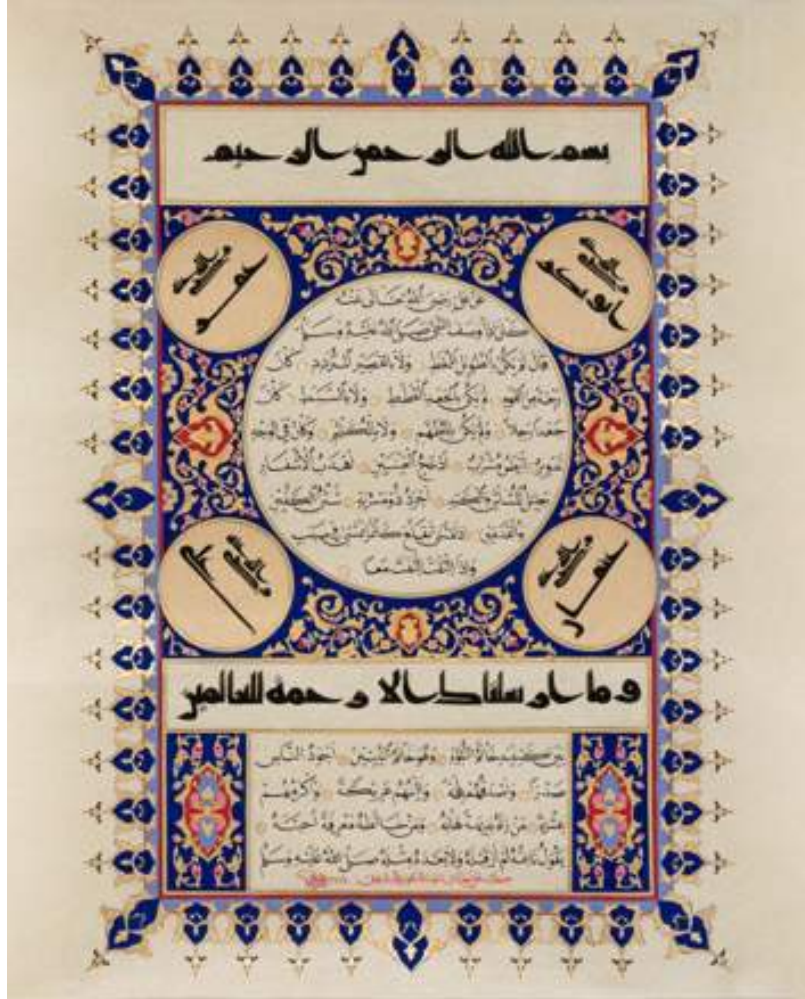 بسم الله الرحمن الرحيم
ابو بكر
رضي الله عنه
عمر
رضي الله عنه
عن علي رضي الله تعالى عنه
كان إذا وصف النبي صلى الله عليه وسلم
قال لم يكن بالطويل الممغط ولا بالقصير المتردد كان
ربعة من القوم ولم يكن بالجعد القطط ولا بالسبط كان
جعدا رجلا ولم يكن بالمطهم ولا بالمكلثم وكان في الوجه
تدوير ابيض مشرب ادعج العينين اهدب الأشفار
جليل المشاش والكتد اجرد ذو مسربة شثن الكفين
والقدمين إذا مشى تقلع كأنما يمشي في صبب
وإذا التفت التفت معا
عثمان
رضي الله عنه
علي
رضي الله عنه
وما ارسلناك الا رحمة للعالمين
بين كتفيه خاتم النبوة وهو خاتم النبيين اجود الناس
صدرا واصدقهم لهجة والينهم عريكة واكرمهم
عشرة من رآه بديهة هابه ومن خالطه معرفة احبه
يقول ناعته لم ار قبله ولا بعده مثله صلى الله عليه وسلم